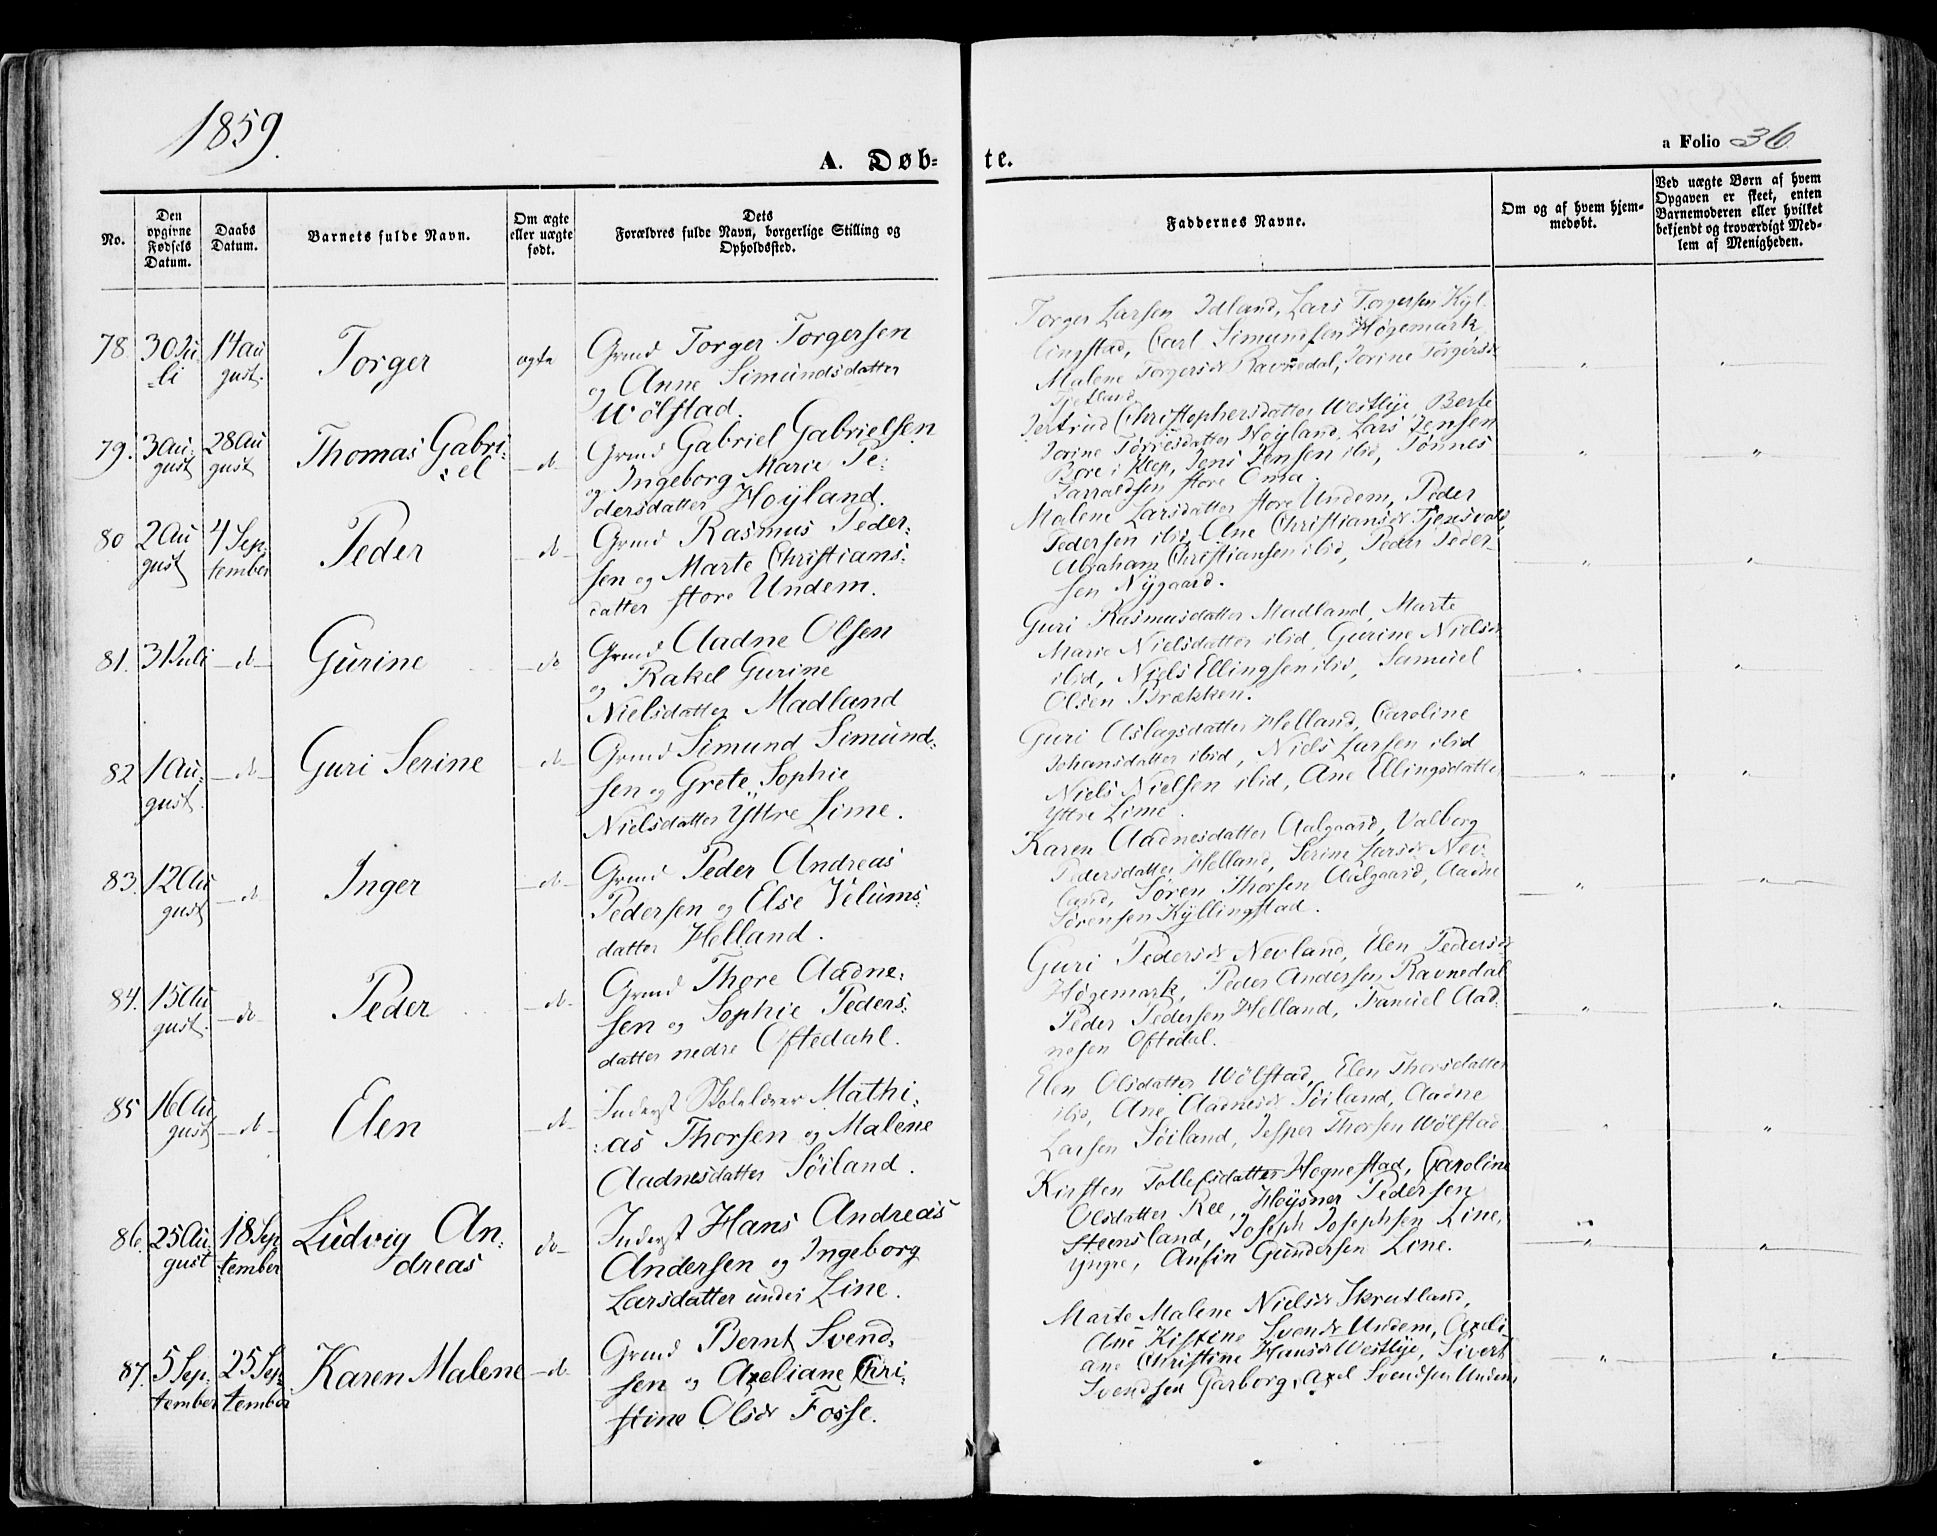 1859.
A. Døb-
te.
a Folio 36
No.
Den
opgivne
Fødsels
Datum.
Daabs
Datum.
Barnets fulde Navn.
Om ægte
eller uægte
født.
Dets
Forældres fulde Navn, borgerlige Stilling og
Opholdssted.
Faddernes Navne.
Om og af hvem hjem-
medøbt.
Ved uægte Børn af hvem
Opgaven er skeet, enten
Barnemoderen eller hvilket
bekjendt og troværdigt Med-
lem af Menigheden.
78.
30 Ju-
li
14 Au
gust.
Torger
ægte
Grmd Torger Torgersen
og Anne Simundsdatter
Wølstad.
Torger Larsen Idland, Lars Torgersen Kyl-
lingstad, Carl Simundsen Høgemark
Malene Torgersdr Ravnedal, Jorine Torgersdr
Tjetland
79.
3 Au-
gust
28 Au
gust
Thomas Gabri-
el
do
Grmd Gabriel Gabrielsen
og Ingeborg Marie Pe-
dersdatter Hoyland.
Jertrud Christophersdatter Westlye, Berte
Jorine Tørresdatter Høyland, Lars Jensen
Bore i Klep, Jens Jensen ibid, Tønnes
Tarraldsen store Oma.
80
2 Au
gust
4 Sep-
tember
Peder
do
Grmd Rasmus Peder-
sen og Marte Christians-
datter store Undem.
Malene Larsdatter store Undem, Peder
Pedersen ibid, Ane Christiansdr Tjensvold
Abraham Christiansen ibid, Peder Peder-
sen Nygaard.
81.
31 Juli
do
Gurine
do
Grmd Aadne Olsen
og Rakel Gurine
Nielsdatter Madland
Guri Rasmusdatter Madland, Marte
Marie Nielsdatter ibid, Gurine Nielsdr
ibid, Niels Ellingsen ibid, Samuel
Olsen Brækken.
82
1 Au-
gust.
do
Guri Serine
do
Grmd Simund Simund-
sen og Grete Sophie
Nielsdatter Yttre Lime.
Guri Aslagsdatter Helland, Caroline
Johansdatter ibid, Niels Larsen ibid
Niels Nielsen ibid, Ane Ellingsdatter
Yttre Lime.
83.
12 Au
gust
do
Inger
do
Grmd Peder Andreas
Pedersen og Else Velums-
datter Helland.
Karen Aadnesdatter Aalgaard, Valborg
Pedersdatter Helland, Serine Larsdr Nev-
land, Søren Thorsen Aalgaard, Aadne
Sørensen Kyllingstad.
84.
15 Au
gust.
do
Peder
do
Grmd Thore Aadne-
sen og Sophie Peders-
datter nedre Oftedahl.
Guri Pedersdr Nevland, Elen Pedersdr
Høgemark, Peder Andersen Ravnedal
Peder Pedersen Helland, Samuel Aad-
nesen Oftedal.
85
16 Au
gust
do
Elen
do
Inderst Skolelærer Mathi-
as Thorsen og Malene
Aadnesdatter Søiland.
Elen Olsdatter Wølstad, Elen Thorsdatter
ibid, Ane Aadnesdr Søiland, Aadne
Larsen Søiland, Jesper Thorsen Wølstad
86.
25 Au
gust
18 Sep
tember
Ludvig An-
dreas
do
Inderst Hans Andreas
Andersen og Ingeborg
Larsdatter under Line.
Kirsten Tollefsdatter Hognestad, Caroline
Olsdatter Ree, Høysner Pedersen
Steensland, Joseph Josephsen Line,
yngre, Ansin Gundersen Line.
87.
5 Sep-
tember
25 Sep-
tember
Karen Malene
do
Grmd Bernt Svend-
sen og Axeliane Chri-
stine Olsdr Fosse.
Marte Malene Nielsdr Skrutland,
Ane Kistine Svendsdr Undem, Axeli-
ane Christine Hansdr Westlye, Sivert
Svendsen Garborg, Axel Svendsen Undem